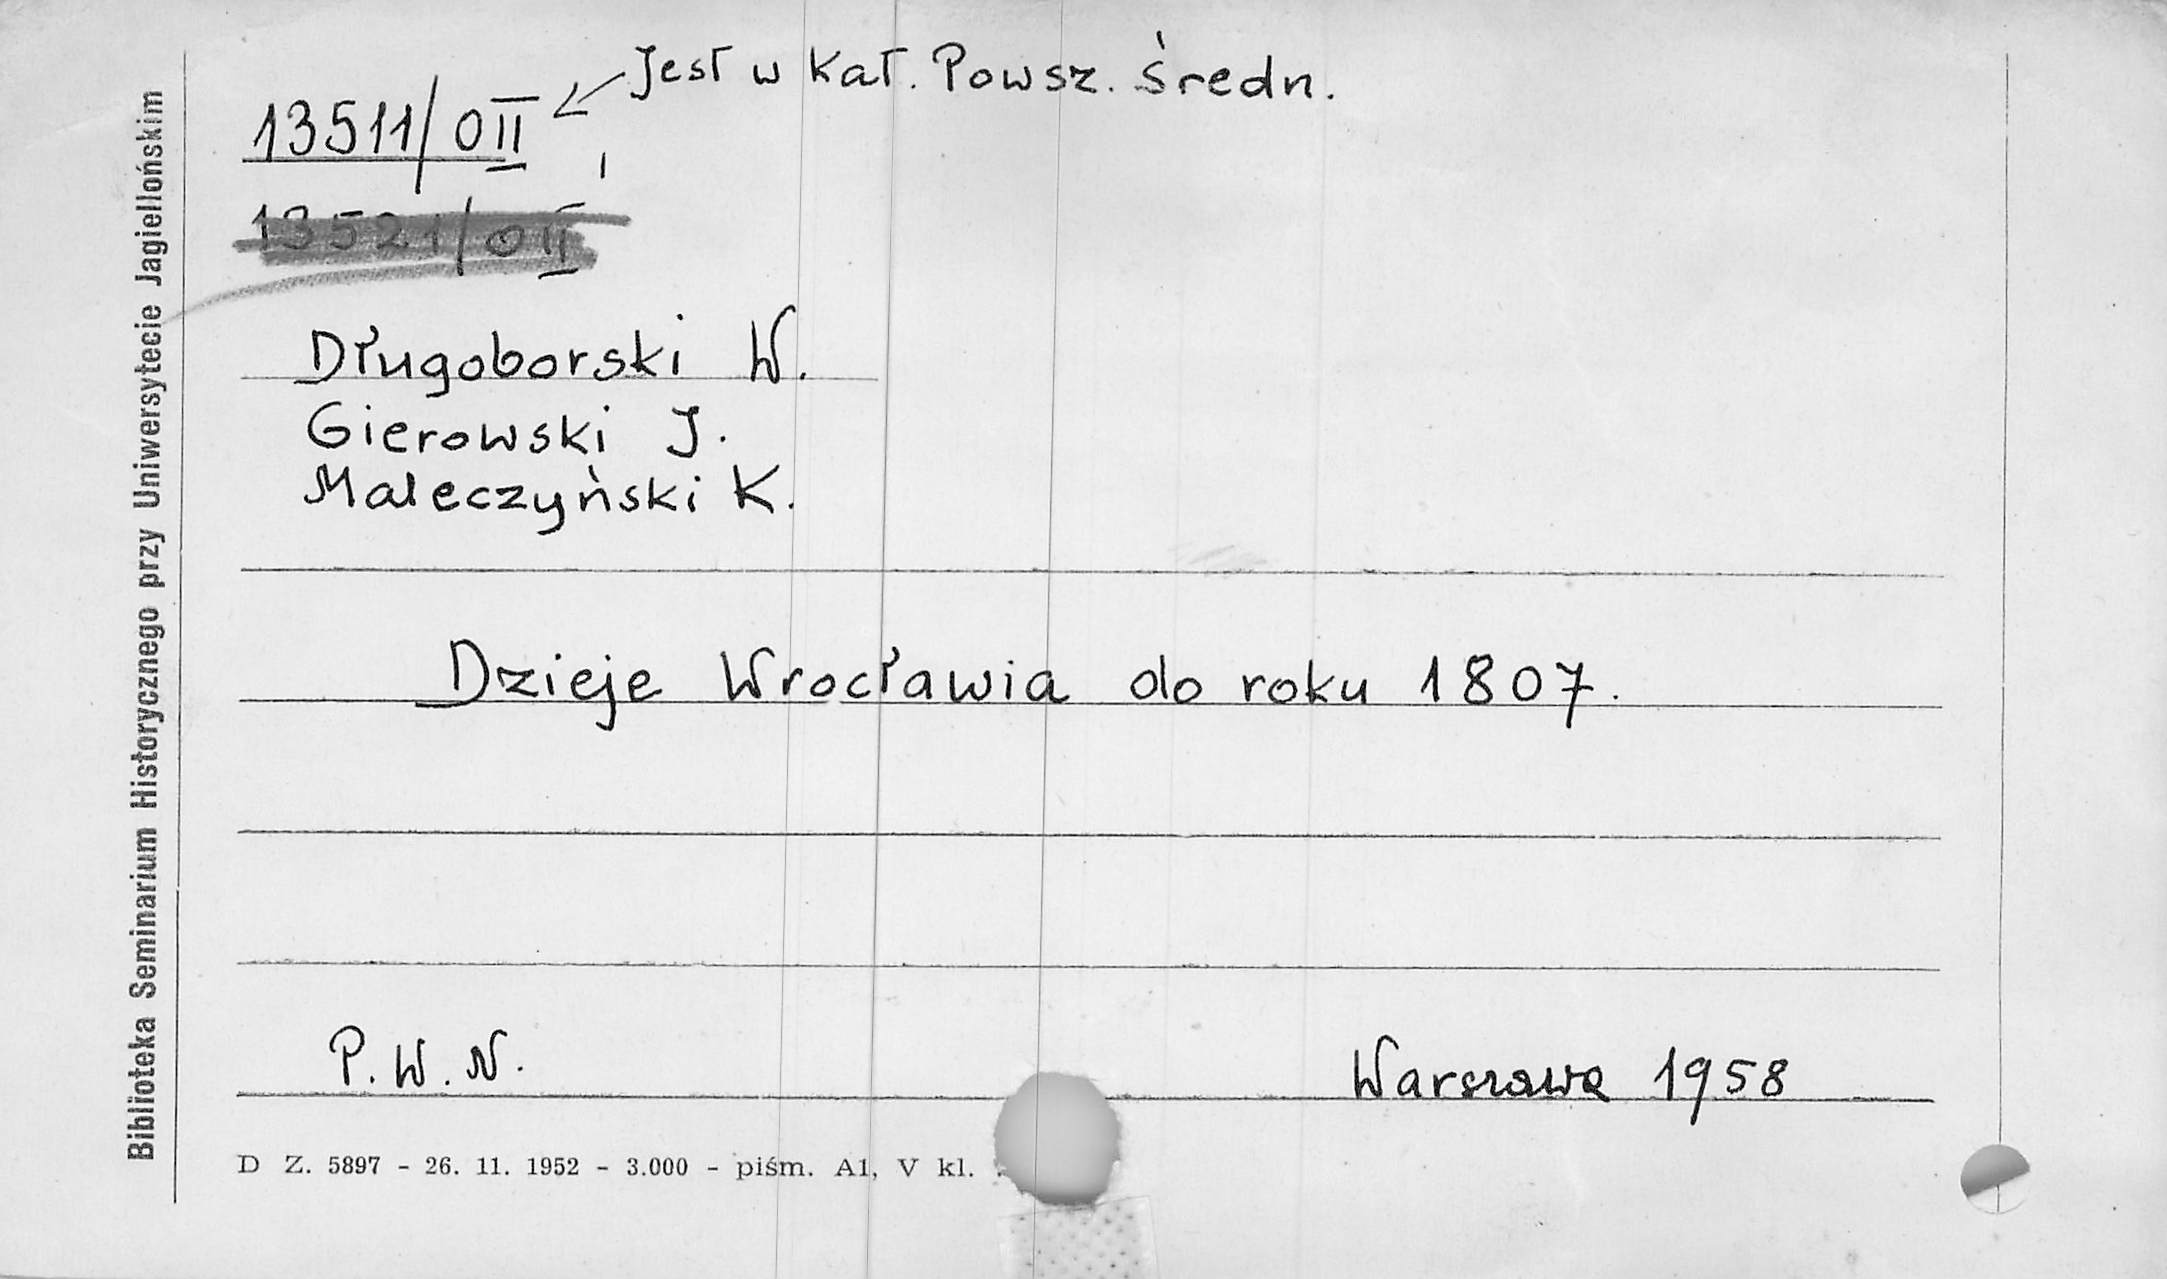 Jest w Kat. Powsz. średn.
13511/OII
13521/OII
Długoborski W.
Gierowski J.
Maleczyński K.
Dzieje Wrocławia do roku 1807.
P.W.N.
Warszawa 1958
D Z. 5897 - 26. 11. 1952 - 3.000 - piśm. A1, V kl.
Biblioteka Seminarium Historycznego przy Uniwersytecie Jagiellońskim